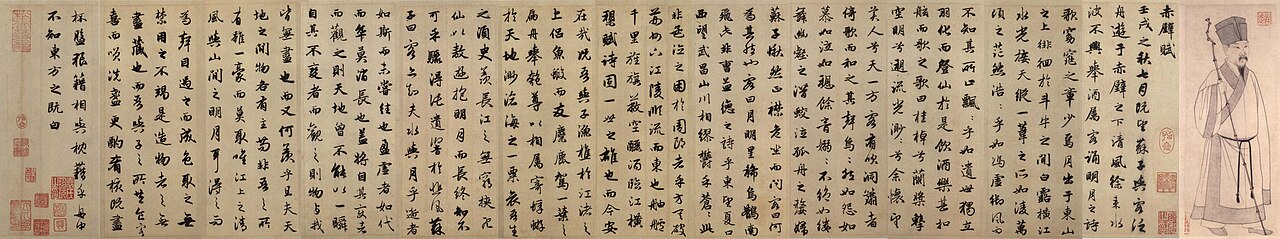 赤壁賦
壬戌之秋七月既望蘇子與客泛
舟遊于赤壁之下清風徐來水
波不興舉酒屬客誦明月之詩
歌窈窕之章少焉月出于東山
之上徘徊於斗牛之間白露橫江
水光接天縱一葦之所如凌萬
頃之茫然浩浩乎如馮虛御風而
不知其所止飄飄乎如遺世獨立
羽化而登仙於是飲酒樂甚扣
舷而歌之歌曰桂棹兮蘭槳擊
空明兮泝流光渺渺兮余懷望
美人兮天一方客有吹洞簫者
倚歌而和之其聲嗚嗚然如怨如
慕如泣如訴餘音嫋嫋不絕如縷
舞幽壑之潛蛟泣孤舟之嫠婦
蘇子愀然正襟危坐而問客曰何
為其然也客曰月明星稀烏鵲南
飛此非曹孟德之詩乎東望夏口
西望武昌山川相繆鬱乎蒼蒼此
非孟德之困於周郎者乎方其破
荊州下江陵順流而東也舳艫
千里旌旗蔽空釃酒臨江橫
槊賦詩固一世之雄也而今安
在哉況吾與子漁樵於江渚之
上侶魚蝦而友麋鹿駕一葉之
扁舟舉匏尊以相屬寄蜉蝣
於天地渺滄海之一粟哀吾生
之須臾羨長江之無窮挾飛
仙以遨遊抱明月而長終知不
可乎驟得託遺響於悲風蘇
子曰客亦知夫水與月乎逝者
如斯而未嘗往也盈虛者如代
而卒莫消長也蓋將自其變者
而觀之則天地曾不能以一瞬
自其不變者而觀之則物與我
皆無盡也而又何羨乎且夫天
地之間物各有主苟非吾之所
有雖一毫而莫取唯江上之清
風與山間之明月耳得之而
為聲目遇之而成色取之無
禁用之不竭是造物者之無
盡藏也而吾與子之所共食客
喜而笑洗盞更酌肴核既盡
杯盤狼藉相與枕藉乎舟中
不知東方之既白